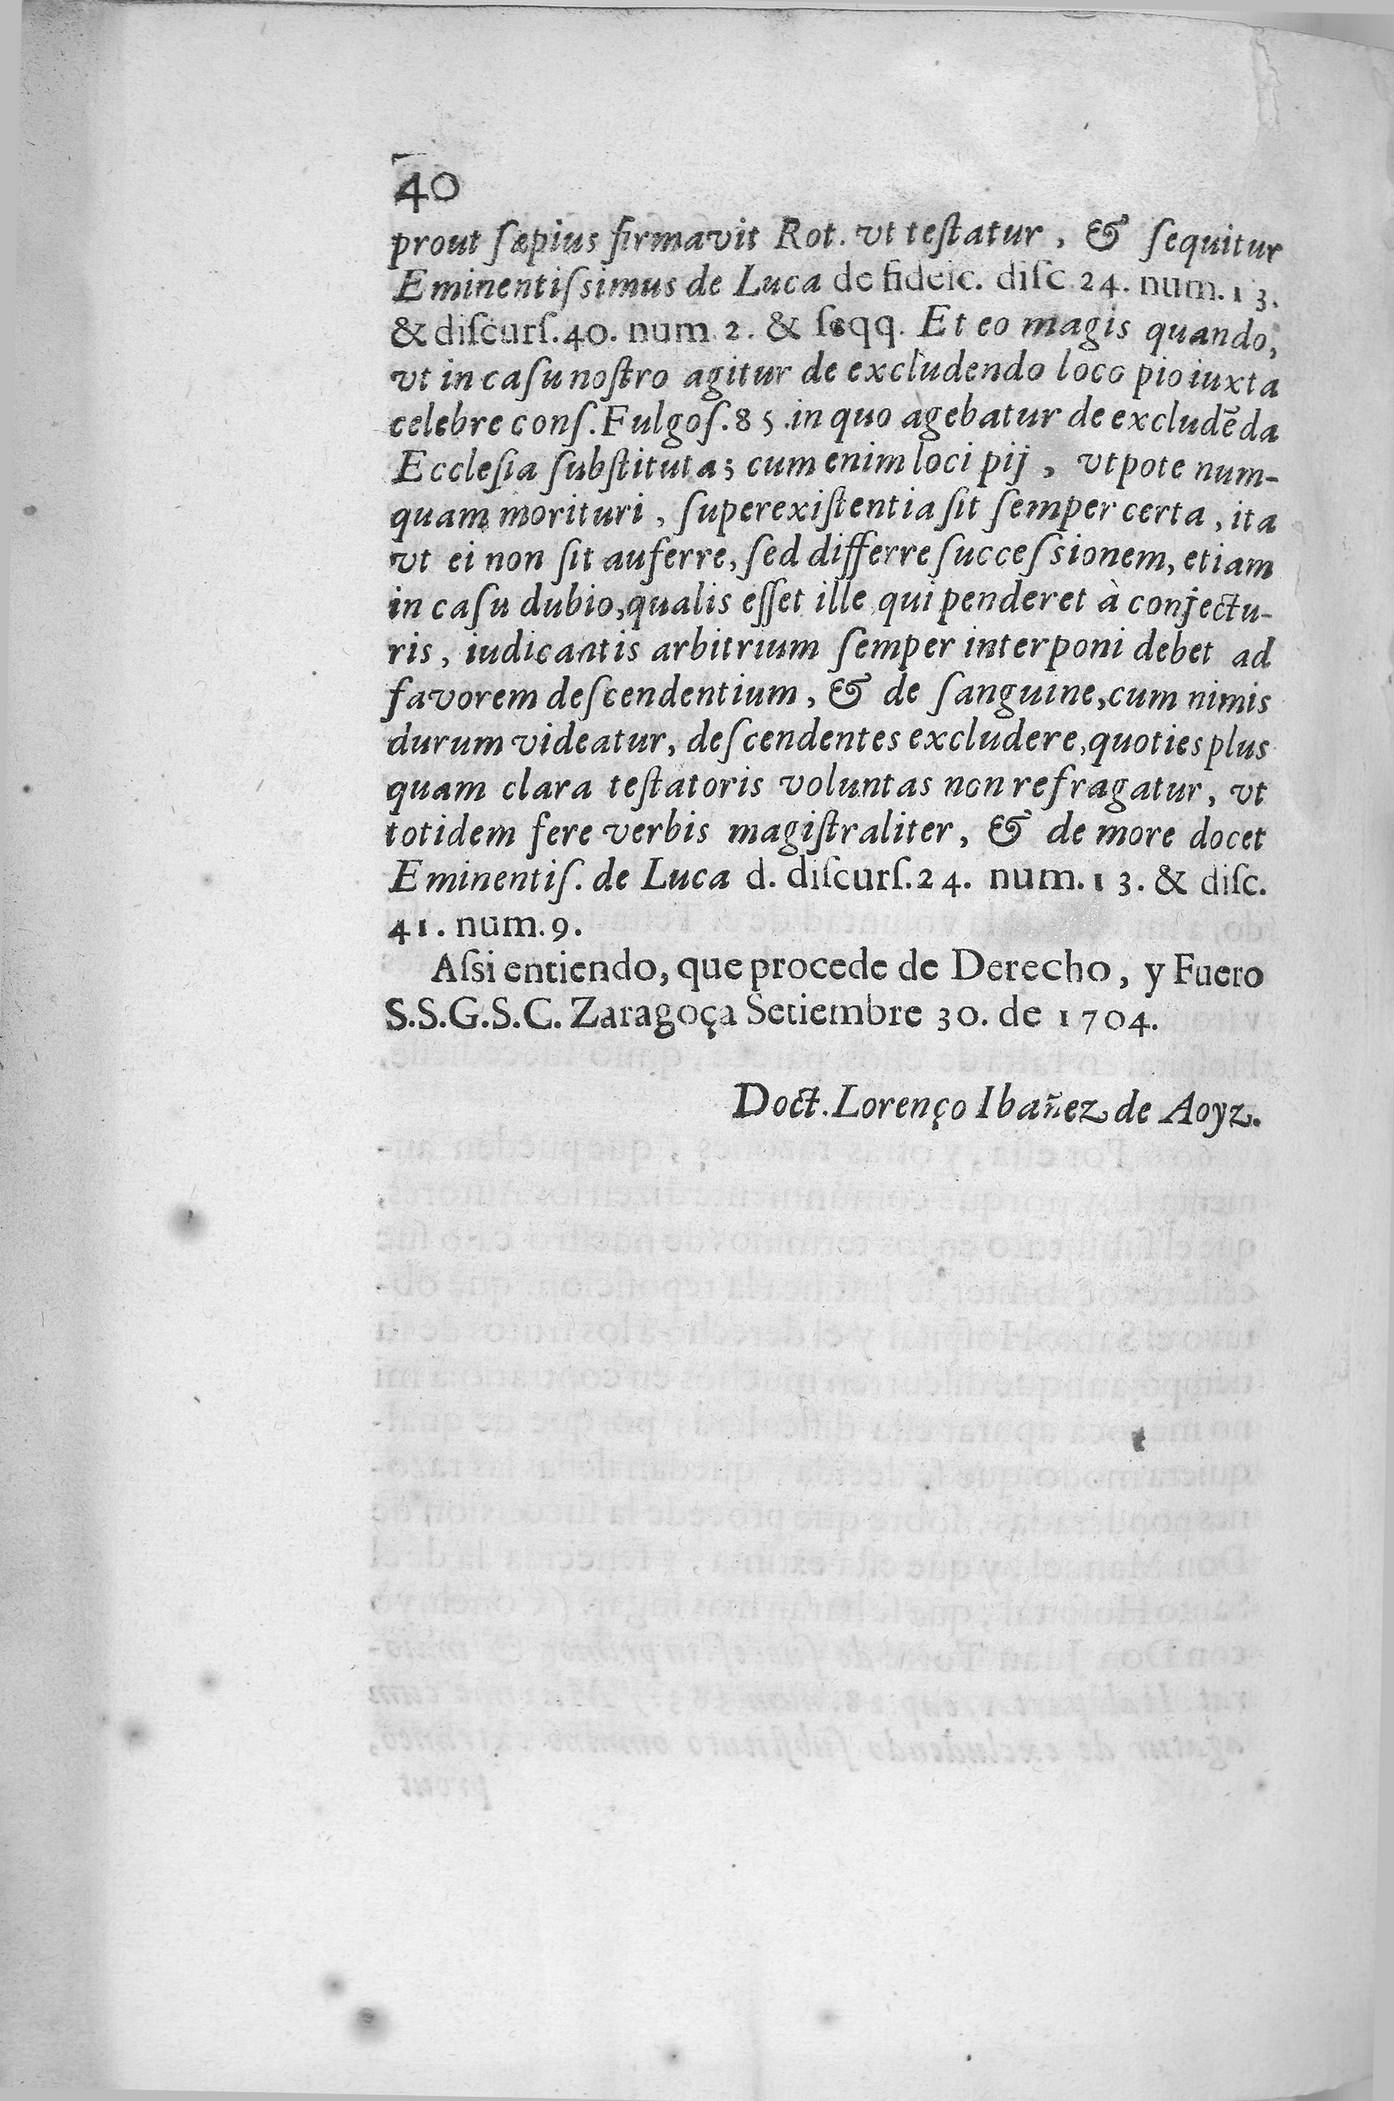 40
prout ſæpius firmavit Rot. vt teſtatur, & ſequitur
Eminentiſsimus de Luca de fideic. diſc 24. num. 13.
& diſcurſ. 40. num 2. & ſeqq. Et eo magis quando,
vt in caſu noſtro agitur de excludendo loco pio iuxta
celebre conſ. Fulgoſ. 85. in quo agebatur de excludẽda
Eccleſia ſubſtituta; cum enim loci pij, vtpote num-
quam morituri, ſuperexiſtentia ſit ſemper certa, ita
vt ei non ſit auferre, ſed differre ſucceſsionem, etiam
in caſu dubio, qualis eſſet ille qui penderet à conjectu-
ris, iudicantis arbitrium ſemper interponi debet ad
favorem deſcendentium, & de ſanguine, cum nimis
durum videatur, deſcendentes excludere, quoties plus
quam clara teſtatoris voluntas non refragatur, vt
totidem fere verbis magiſtraliter, & de more docet
Eminentiſ. de Luca d. diſcurſ. 24. num. 13. & diſc.
41. num. 9.
Aſsi entiendo, que procede de Derecho, y Fuero
S.S.G.S.C. Zaragoça Setiembre 30. de 1704.
Doct. Lorenço Ibañez de Aoyz.